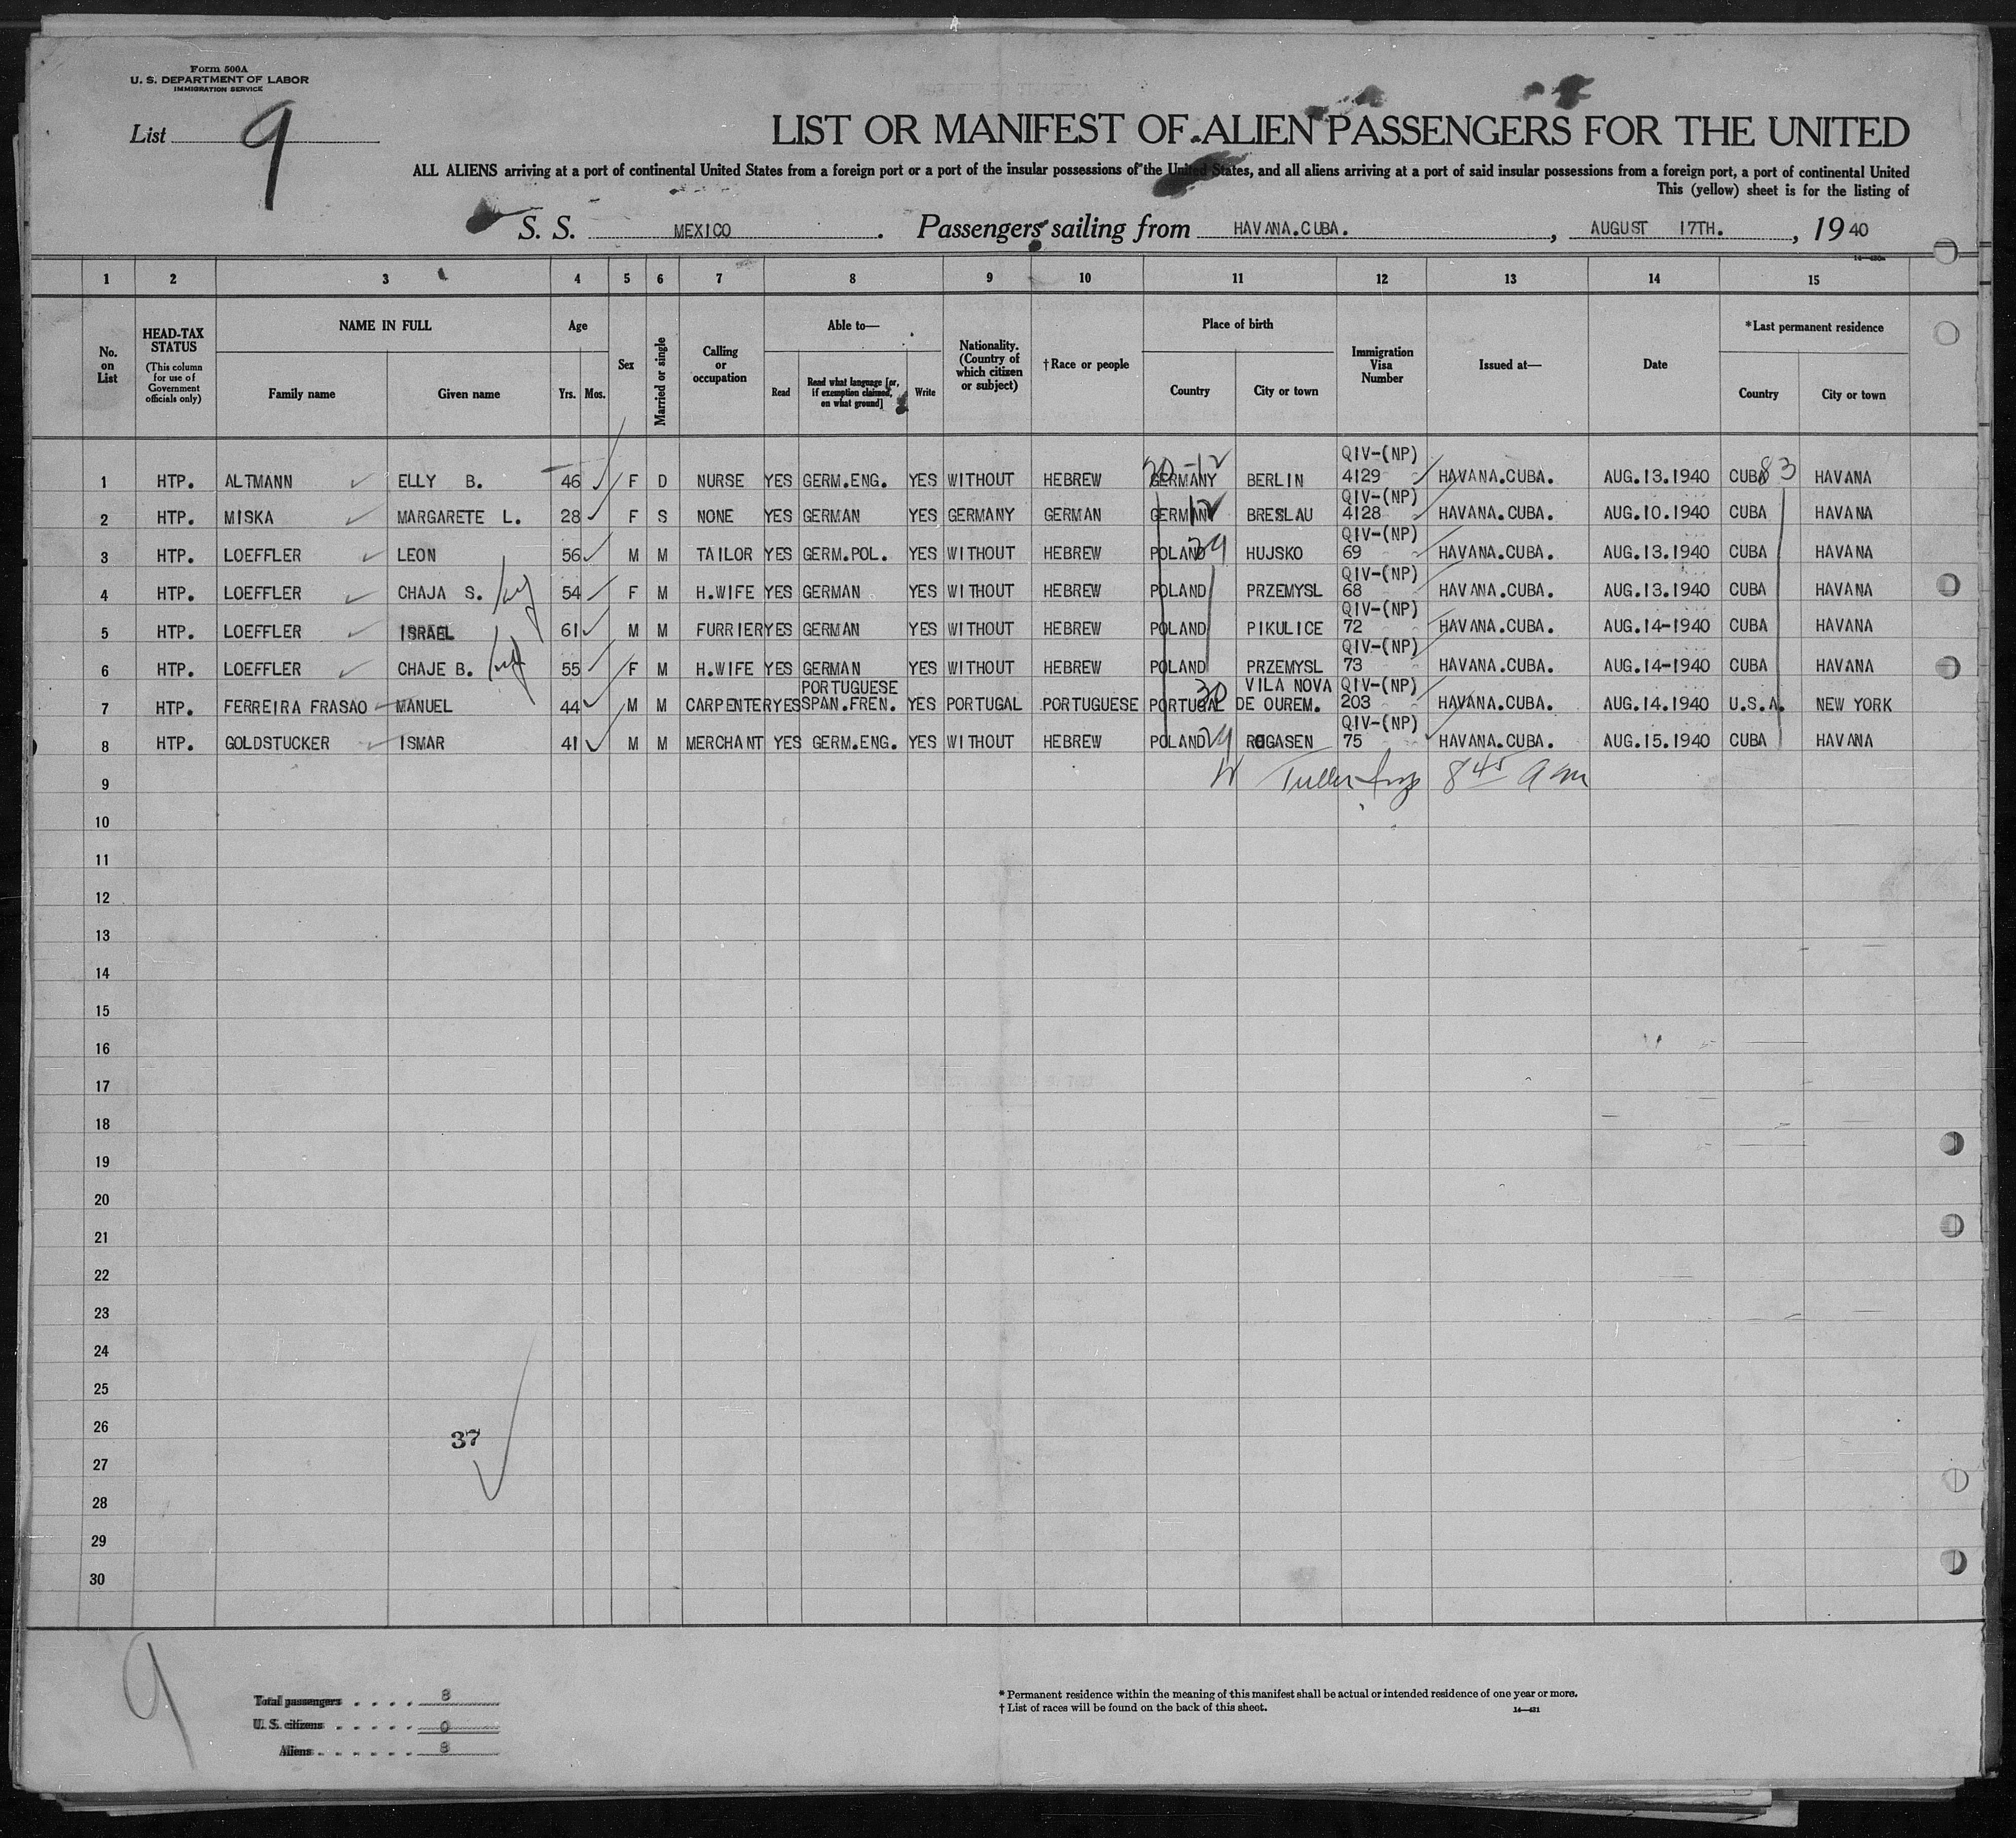 Form 500A
U. S. DEPARTMENT OF LABOR
IMMIGRATION SERVICE
List 9
LIST OR MANIFEST OF ALIEN PASSENGERS FOR THE UNITED
ALL ALIENS arriving at a port of continental United States from a foreign port or a port of the insular possessions of the United States, and all aliens arriving at a port of said insular possessions from a foreign port, a port of continental United
This (yellow) sheet is for the listing of
S. S. MEXICO. Passengers sailing from HAVANA.CUBA. , AUGUST 17TH. , 1940
1 2 3 4 5 6 7 8 9 10 11 12 13 14 15
No. on List
HEAD-TAX STATUS
(This column for use of Government officials only)
NAME IN FULL
Family name Given name
Age
Yrs. Mos.
Sex
Married or single
Calling or occupation
Able to—
Read Read what language [or, if exemption claimed, on what ground] Write
Nationality. (Country of which citizen or subject)
† Race or people
Place of birth
Country City or town
Immigration Visa Number
Issued at—
Date
*Last permanent residence
Country City or town
1 HTP. ALTMANN ELLY B. 46 F D NURSE YES GERM.ENG. YES WITHOUT HEBREW GERMANY BERLIN QIV-(NP) 4129 HAVANA.CUBA. AUG.13.1940 CUBA 83 HAVANA
2 HTP. MISKA MARGARETE L. 28 F S NONE YES GERMAN YES GERMANY GERMAN GERMANY 12 BRESLAU QIV-(NP) 4128 HAVANA.CUBA. AUG.10.1940 CUBA HAVANA
3 HTP. LOEFFLER LEON 56 M M TAILOR YES GERM.POL. YES WITHOUT HEBREW POLAND 29 HUJSKO QIV-(NP) 69 HAVANA.CUBA. AUG.13.1940 CUBA HAVANA
4 HTP. LOEFFLER CHAJA S. 54 F M H.WIFE YES GERMAN YES WITHOUT HEBREW POLAND PRZEMYSL QIV-(NP) 68 HAVANA.CUBA. AUG.13.1940 CUBA HAVANA
5 HTP. LOEFFLER ISRAEL 61 M M FURRIER YES GERMAN YES WITHOUT HEBREW POLAND PIKULICE QIV-(NP) 72 HAVANA.CUBA. AUG.14-1940 CUBA HAVANA
6 HTP. LOEFFLER CHAJE B. 55 F M H.WIFE YES GERMAN YES WITHOUT HEBREW POLAND PRZEMYSL QIV-(NP) 73 HAVANA.CUBA. AUG.14-1940 CUBA HAVANA
7 HTP. FERREIRA FRASAO MANUEL 44 M M CARPENTER YES PORTUGUESE SPAN.FREN. YES PORTUGAL PORTUGUESE PORTUGAL 30 VILA NOVA DE OUREM. QIV-(NP) 203 HAVANA.CUBA. AUG.14.1940 U.S.A. NEW YORK
8 HTP. GOLDSTUCKER ISMAR 41 M M MERCHANT YES GERM.ENG. YES WITHOUT HEBREW POLAND 29 ROGASEN QIV-(NP) 75 HAVANA.CUBA. AUG.15.1940 CUBA HAVANA
9 8 45 am
10
11
12
13
14
15
16
17
18
19
20
21
22
23
24
25
26
37
27
28
29
30
9
Total passengers . . . . 8
U. S. citizens . . . . . 0
Aliens . . . . . . 8
* Permanent residence within the meaning of this manifest shall be actual or intended residence of one year or more.
† List of races will be found on the back of this sheet.
14—421